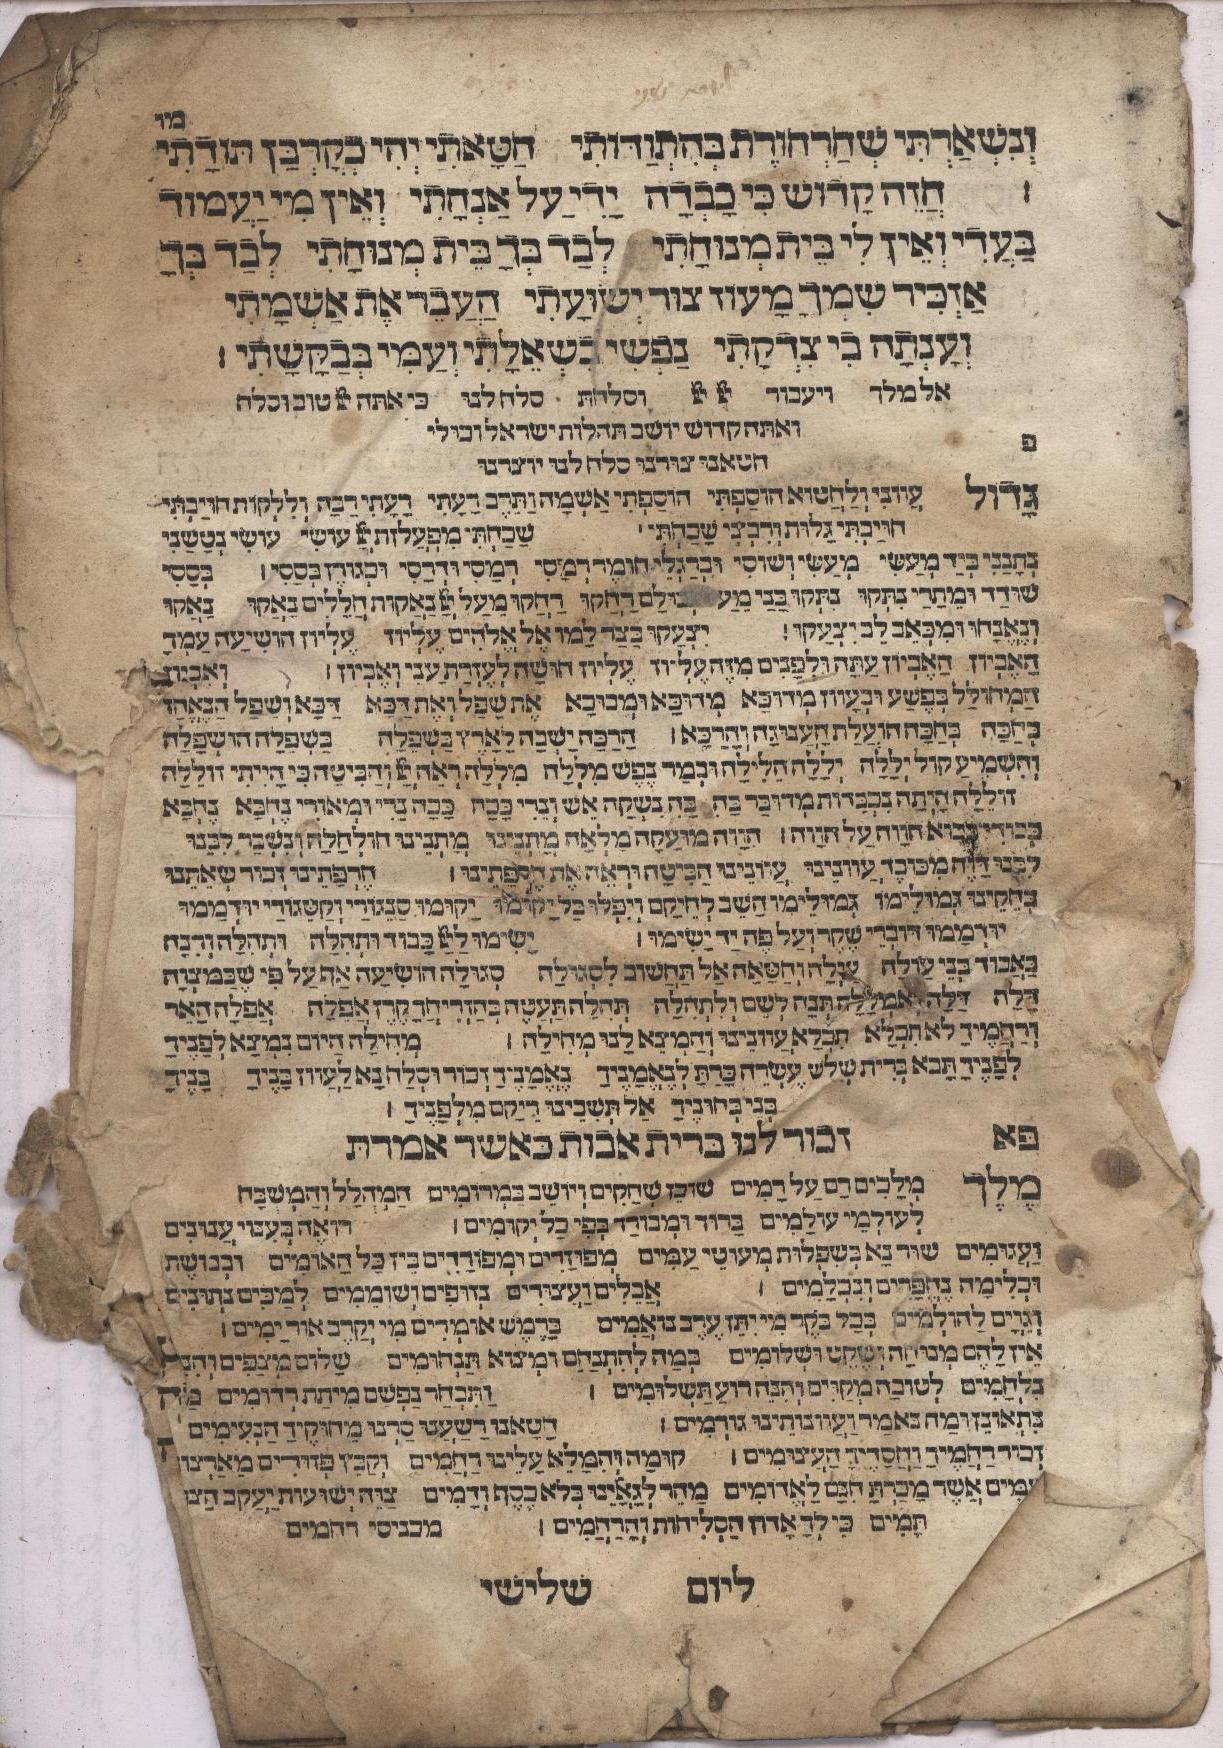 מו
וְנִשְׁאַרְתִּי שְׁחַרְחוֹרֶת בְּהִתְוַדּוֹתִי חַטָּאתִי יְהִי כְּקָרְבַּן תּוֹדָתִי
חֲזֵה קָדוֹשׁ כִּי כָבְדָה יָדִי עַל אַנְחָתִי וְאֵין מִי יַעֲמוֹד
בַּעֲדִי וְאֵין לִי בֵּית מְנוּחָתִי לְבַד בְּךָ בֵּית מְנוּחָתִי לְבַד בְּךָ
אַזְכִּיר שִׁמְךָ מָעוֹז צוּר יְשׁוּעָתִי הַעֲבֵר אֶת אַשְׁמָתִי
וְעָנְתָה בִּי צִדְקָתִי נַפְשִׁי בִּשְׁאֵלָתִי וְעַמִּי בְּבַקָּשָׁתִי :
אל מלך ויעבור וסלחת סלח לנו כי אתה טוב וסלח
ואתה קדוש יושב תהלות ישראל וכולי
פ
חטאנו צורנו סלח לנו יוצרנו
גָּדוֹל עֲווֹנִי וְלַחֲטוֹא הוֹסַפְתִּי הוֹסַפְתִּי אַשְׁמָה וַתֵּרֶב רָעָתִי רָעָתִי רַבָּה וְלִלְקוֹת חוּיַבְתִּי
חוּיַבְתִּי גָלוּת וְרִבְצִי שָׁכַחְתִּי : שָׁכַחְתִּי מִפְעֲלוֹת עוֹשִׂי עוֹשִׂי נְטָשַׁנִי
נְתָנַנִי בְּיַד מְעַשִּׂי מְעַשִּׂי וְשׁוֹסִי וּבְרַגְלֵי חוֹמֶר רְמָסִי רְמָסִי וּדְרָסִי וּכְגוֹרֶן בְּסָסִי : בְּסָסִי
יִצְעֲקוּ בַּצַּר לָמוֹ אֶל אֱלֹהִים עֶלְיוֹן עֶלְיוֹן הוֹשִׁיעָה עֲמָךְ
הָאֶבְיוֹן הָאֶבְיוֹן עַתָּה וְלִפְנִים מִזֶּה עֶלְיוֹן עֶלְיוֹן חוּשָׁה לְעֶזְרַת עָנִי וְאֶבְיוֹן : וְאֶבְיוֹן
הַמְחוֹלָל בְּפֶשַׁע וּבְעָווֹן מְדוּכָּא מְדוּכָּא וּמְבוּכָא אֶת שָׁפָל וְאֶת דַּכָּא דַּכָּא וּשְׁפַל
הַרַכָּה יָשְׁבָה לָאָרֶץ בַּשְׁפֵלָה בַּשְׁפֵלָה הוּשְׁפָּלָה
וְהִשְׁמִיעַ קוֹל יְלָלָה יְלָלָה הֵלִילָה וּבְמַר נֶפֶשׁ מִלְּלָה מִלְּלָה רְאֵה וְהַבִּיטָה כִּי הָיִיתִי זוֹלֵלָה
זוֹלֵלָה הָיְתָה נִכְבָּדוֹת מְדוּבָּר בָּהּ
הֹוָה מוּעָקָה מְלֵאָה מָתְנֵינוּ מָתְנֵינוּ חוֹלְחָלָה וְנִשְׁבַּר לִבֵּנוּ
לִבֵּנוּ דָוֶה מִכּוֹבֶד עֲווֹנֵינוּ עֲווֹנֵינוּ הַבִּיטָה וּרְאֵה אֶת חֶרְפָּתֵינוּ : חֶרְפָּתֵינוּ זְכוֹר שְׂאֵתֵנוּ
בְּחֵקֵינוּ גְּמוּלֵימוֹ גְּמוּלֵימוֹ הָשֵׁב לְחֵיקָם וְיִפְּלוּ בַּל יָקוּמוּ יָקוּמוּ סַנֵּגוֹרֵי וְקַטֵּגוֹרַי יִדְמָמוּ
יִדְמָמוּ דּוֹבְרֵי שֶׁקֶר וְעַל פֶּה יַד יָשִׂימוּ : יָשִׂימוּ כָּבוֹד וּתְהִלָּה
אַל תַּחְשׁוֹב לִסְגוּלָה סְגוּלָה הוֹשִׁיעָה אַף עַל פִּי שֶׁבַּמִּצְוָה
דַּלָּה דַּלָּה אֻמְלָלָה תְּנָה לְשֵׁם וְלִתְהִלָּה תְּהִלָּה
וְרַחֲמֶיךָ לֹא תִכְלָא תִּכְלָא עֲווֹנֵינוּ וְהַמְצֵא לָנוּ מְחִילָה : מְחִילָה הַיּוֹם נִמְצָא לְפָנֶיךָ
לְפָנֶיךָ תָּבֹא בְּרִית שְׁלֹשׁ עֶשְׂרֵה כָּרַתָּ לְנֶאֱמָנֶיךָ נֶאֱמָנֶיךָ זְכוֹר וּסְלַח נָא לַעֲווֹן בָּנֶיךָ בָּנֶיךָ
בְּנֵי בְחוּנֶיךָ אַל תְּשִׁיבֵינוּ רֵיקָם מִלְּפָנֶיךָ :
פא זכור לנו ברית אבות כאשר אמרת
מֶלֶךְ מְלָכִים רָם עַל רָמִים שׁוֹכֵן שְׁחָקִים וְיוֹשֵׁב בַּמְּרוֹמִים הַמְהֻלָּל וְהַמְשֻׁבָּח
לְעוֹלְמֵי עוֹלָמִים בָּרוּךְ וּמְבוֹרָךְ בְּפִי כָּל יְקוּמִים : רוֹאֶה בְּעִנּוּי עֲנוּגִים
וַעֲגוּמִים שׁוּר נָא בְּשִׁפְלוּת מְעוּטֵי עַמִּים מְפוּזָּרִים וּמְפוֹרָדִים בֵּין כָּל הָאוּמִים וּבְבוּשֶׁת
וּכְלִימָּה נֶחְפָּרִים וְנִכְלָמִים : אֲבֵלִים וַעֲצוּרִים נְזוּפִים וְשׁוֹמֵמִים לְמַכִּים נְתוּנִים
וְגֵוִים לְהוֹלְמִים בְּכָל בֹּקֶר מִי יִתֵּן עֶרֶב נוֹאֲמִים בָּרֶמֶשׁ אוֹמְרִים מִי יְקָרֵב אוֹר יָמִים :
אֵין לָהֶם מְנוּחָה וְשֶׁקֶט וּשְׁלוֹמִים כַּמָּה לְהִתְנַחֵם וּמְצוֹא תַּנְחוּמִים שָׁלוֹם מְצַפִּים
נִלְחָמִים לְטוֹבָה מְקַוִּים וְהִנֵּה רוֹעַ תַּשְׁלוּמִים : וַתִּבְחַר נַפְשָׁם מִיתַת רְדוּמִים מַה
נִּתְאוֹנֵן וּמַה נֹּאמַר וַעֲווֹנוֹתֵינוּ גוֹרְמִים : חָטָאנוּ רָשַׁעְנוּ סַרְנוּ מֵחוּקֶיךָ הַנְּעִימִים
זְכוֹר רַחֲמֶיךָ וַחֲסָדֶיךָ הָעֲצוּמִים : קוּמָה וְהִמָּלֵא עָלֵינוּ רַחֲמִים וְקַבֵּץ פְּזוּרִים
עַמִּים אֲשֶׁר מָכַרְתָּ חִנָּם לַאֲדוֹמִים מַהֵר לְגָאֳלֵינוּ בְּלֹא כֶסֶף וְדָמִים צַוֵּה יְשׁוּעוֹת יַעֲקֹב
תָּמִים כִּי לְךָ אָדוֹן הַסְּלִיחוֹת וְהָרַחֲמִים : מכניסי רחמים
ליום שלישי